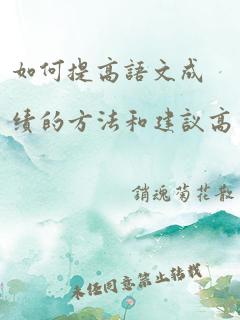 如何提高語文成
績的方法和建議高
銷魂菊花散
未经同意禁止转载